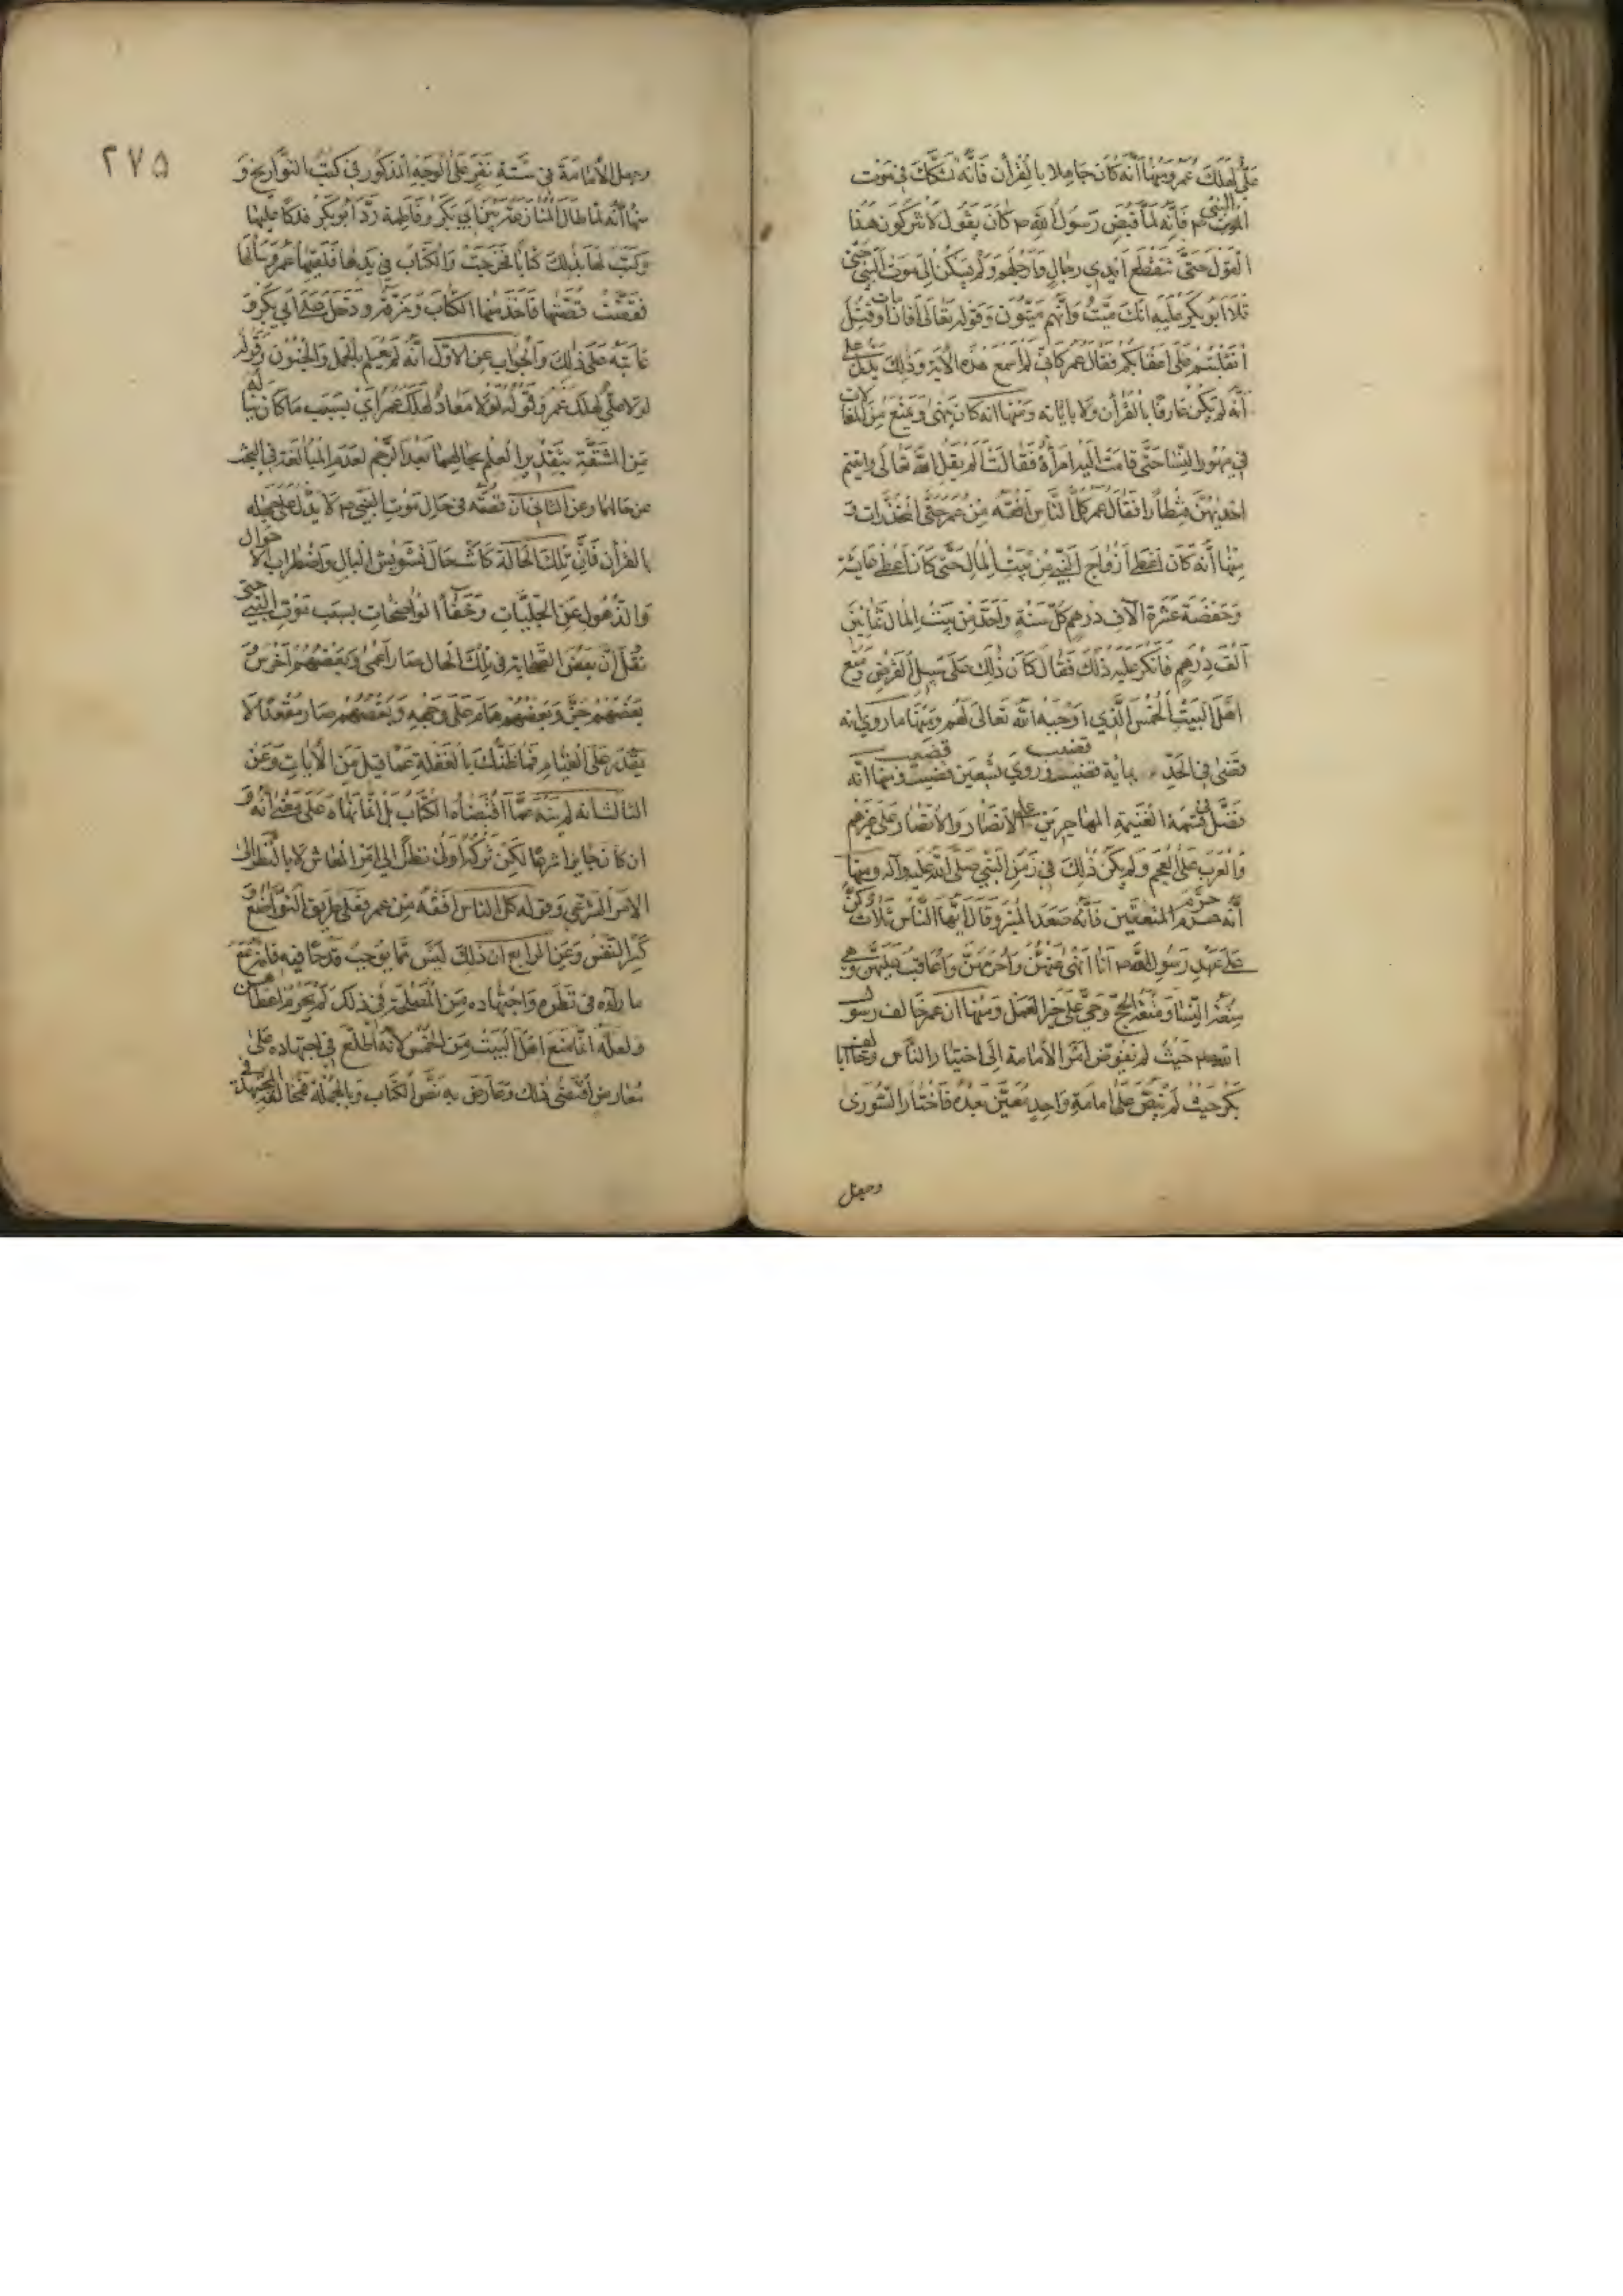 علي لهلك عمر ومنها أنه كان جاهلا بالقرأن فانه تشكك في موت
النبي ص فانه لما قبض رسول الله ص كان يقول لا تتركون هذا
القول حتى تقطع ايدي رجال وارجلهم ولم يسكن الى موت النبي حتى
تلا ابو بكر عليه انك ميت وانهم ميتون وقوله تعالى أفان مات او قتل
انقلبتم على اعقابكم فقال عمر كاني لم اسمع هذه الأية وذلك يدل على
أنه لم يكن عارفا بالقرأن ولا باياته ومنها انه كان ينهى ويمنع من المغالات
في مهور النسا حتى قامت اليه امرأة فقالت ألم يقل الله تعالى واتيتم
احديهن قنطارا فقال عمر كل الناس افقه من عمر حتى المخدرات و
منها أنه كان اعطى أزواج النبي من بيت المال حتى كان اعطى عايشة
وحفصة عشرة الآف درهم كل سنة واخذ من بيت المال ثمانين
الف درهم فأنكر عليه ذلك فقال كان ذلك على سبيل القرض ومنع
اهل البيت الخمس الذي اوجبه الله تعالى لهم ومنها ما روي انه
قضى في الحد بماية قضيب وروي تسعين قضيب ومنها انه
فضل في قسمة الغنيمة المهاجرين على الانصار والأنصار على غيرهم
والعرب على العجم ولم يكن ذلك في زمن النبي صلى الله عليه وآله ومنها
أنه حرم المتعتين فأنه صعد المنبر وقال ايها الناس ثلاث كن
على عهد رسول الله ص انا انهى عنهن وأحرمهن واعاقب عليهن وهي
متعة النسا ومتعة الحج وحي على خير العمل ومنها ان عمر خالف رسول
الله ص حيث لم يفوض أمر الأمامة الى اختيار الناس وخالف ابا
بكر حيث لم ينص على امامة واحد معين بعده فاختار الشورى
وجعل
٢٧٥
وجعل الأمامة في ستة نفر على الوجه المذكور في كتب التواريخ و
منها أنه لما طال المنازعة بين أبي بكر وفاطمة رد أبو بكر فدكا عليها
وكتب لها بذلك كتابا فخرجت والكتاب في يدها فلقيها عمر وسألها
فقصت قصتها فأخذ منها الكتاب ومزقه ودخل على ابي بكر و
عاتبه على ذلك والجواب عن الاول أنه لم يعلم بالحمل والجنون وقوله
لولا علي لهلك عمر وقوله لولا معاذ لهلك عمر أي بسبب ما كان يناله
من المشقة بتقدير العلم بحالهما بعد الرجم لعدم المبالغة في البحث
عن حالهما وعن الثاني أن قصته في حال موت النبي ص لا يدل على جهله
بالقرأن فان تلك الحالة كانت حال تشويش البال واضطراب الأحوال
والذهول عن الجليات وخفأ الواضحات بسبب موت النبي حتى
نقل ان بعض الصحابة في تلك الحال صار أعمى وبعضهم أخرس و
بعضهم جن وبعضهم هام على وجهه وبعضهم صار مقعدا لا
يقدر على القيام فما ظنك بالغفلة عما قيل من الأيات وعن
الثالث انه لم ينه عما اقتضاه الكتاب بل انما نهاه على معنى أنه و
ان كان جايزا شرعا لكن تركه أولى نظرا الى امر المعاش لا بالنظر الى
الامر الشرعي وقوله كل الناس افقه من عمر فعلى طريق التواضع و
كسر النفس وعن الرابع ان ذلك ليس مما يوجب قدحا فيه فانه مع
ما رآه في نظره واجتهاده من المصلحة في ذلك لم يحرم اعطاهن
ولعله انما منع اهل البيت من الخمس لأنه اطلع في اجتهاده على
معارض اقتضى ذلك وعارض به نص الكتاب وبالجملة فمخالفة المجتهد في